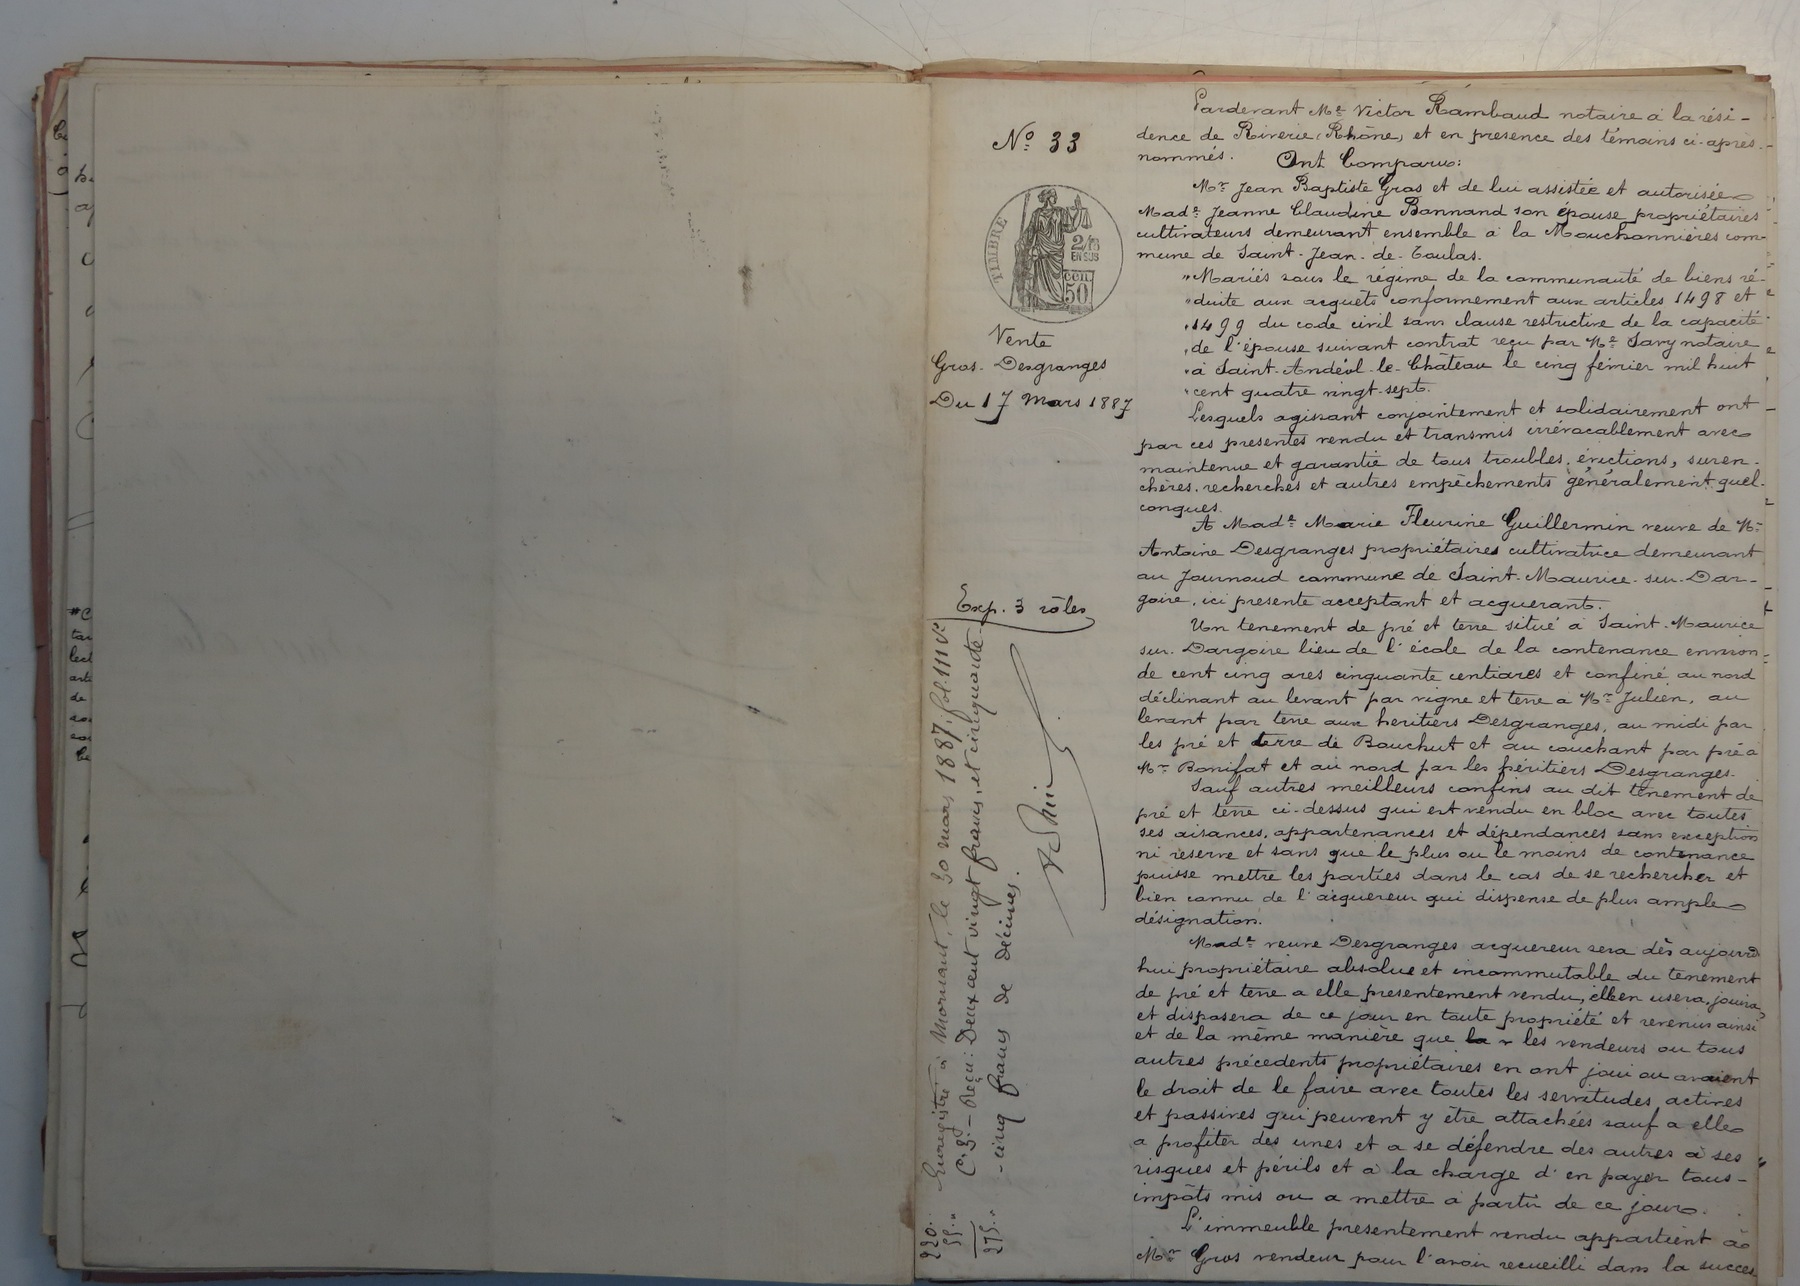 N° 33
TIMBRE
2/10
EN SUS
cen
50
Vente
Gros-Desgranges
Du 17 Mars 1887
Exp. 3 rôles
Enregistré à Mornant, le 30 mars 1887, fol. 111 V°
C. 3. — Reçu: Deux cent vingt francs, et cinquante-
-cinq francs de décimes.
220.
55.
275.
Pardevant Me Victor Rambaud notaire à la rési-
dence de Riverie (Rhône) et en presence des témoins ci-après
nommés. Ont Comparu:
Mr Jean Baptiste Gros et de lui assistée et autorisée
Made Jeanne Claudine Bonnand son épouse propriétaires
cultivateurs demeurant ensemble à la Mouchonnières com-
mune de Saint-Jean-de-Toulas.
"Mariés sous le régime de la communauté de biens ré-
"duite aux acquêts conformement aux articles 1498 et
"1499 du code civil sans clause restrictive de la capacité
"de l'épouse suivant contrat reçu par Me Savy notaire
"à Saint-Andéol-le-Château le cinq février mil huit
"cent quatre vingt-sept.
Lesquels agissant conjointement et solidairement ont
par ces presentes vendu et transmis irrévocablement avec
maintenue et garantie de tous troubles, évictions, suren-
chères, recherches et autres empêchements généralement quel-
conques.
A Made Marie Fleurine Guillermin veuve de Mr
Antoine Desgranges propriétaires cultivatrice demeurant
au Journoud commune de Saint-Maurice-sur-Dar-
goire, ici presente acceptant et acquerant.
Un tenement de pré et terre situé à Saint-Maurice
sur-Dargoire lieu de l'école de la contenance environ
de cent cinq ares cinquante centiares et confiné au nord
déclinant au levant par vigne et terre à Mr Julien, au
levant par terre aux heritiers Desgranges, au midi par
les pré et terre de Bouchut et au couchant par pré à
Mr Bonifat et au nord par les héritiers Desgranges.
Sauf autres meilleurs confins au dit tènement de
pré et terre ci-dessus qui est vendu en bloc avec toutes
ses aisances, appartenances et dépendances sans exception
ni réserve et sans que le plus ou le moins de contenance
puisse mettre les parties dans le cas de se rechercher et
bien connu de l'acquereur qui dispense de plus ample
désignation.
Made veuve Desgranges acquereur sera dès aujourd
hui propriétaire absolue et incommutable du tenement
de pré et terre a elle presentement vendu, elle en usera, jouira
et disposera de ce jour en toute propriété et revenus ainsi
et de la même manière que les vendeurs ou tous
autres précedents propriétaires en ont joui ou avaient
le droit de le faire avec toutes les servitudes actives
et passives qui peuvent y être attachées sauf a elle
a profiter des unes et a se défendre des autres à ses
risques et périls et à la charge d'en payer tous-
impôts mis ou a mettre à partir de ce jour.
L'immeuble presentement vendu appartient à
Mr Gros vendeur pour l'avoir recueilli dans la succes